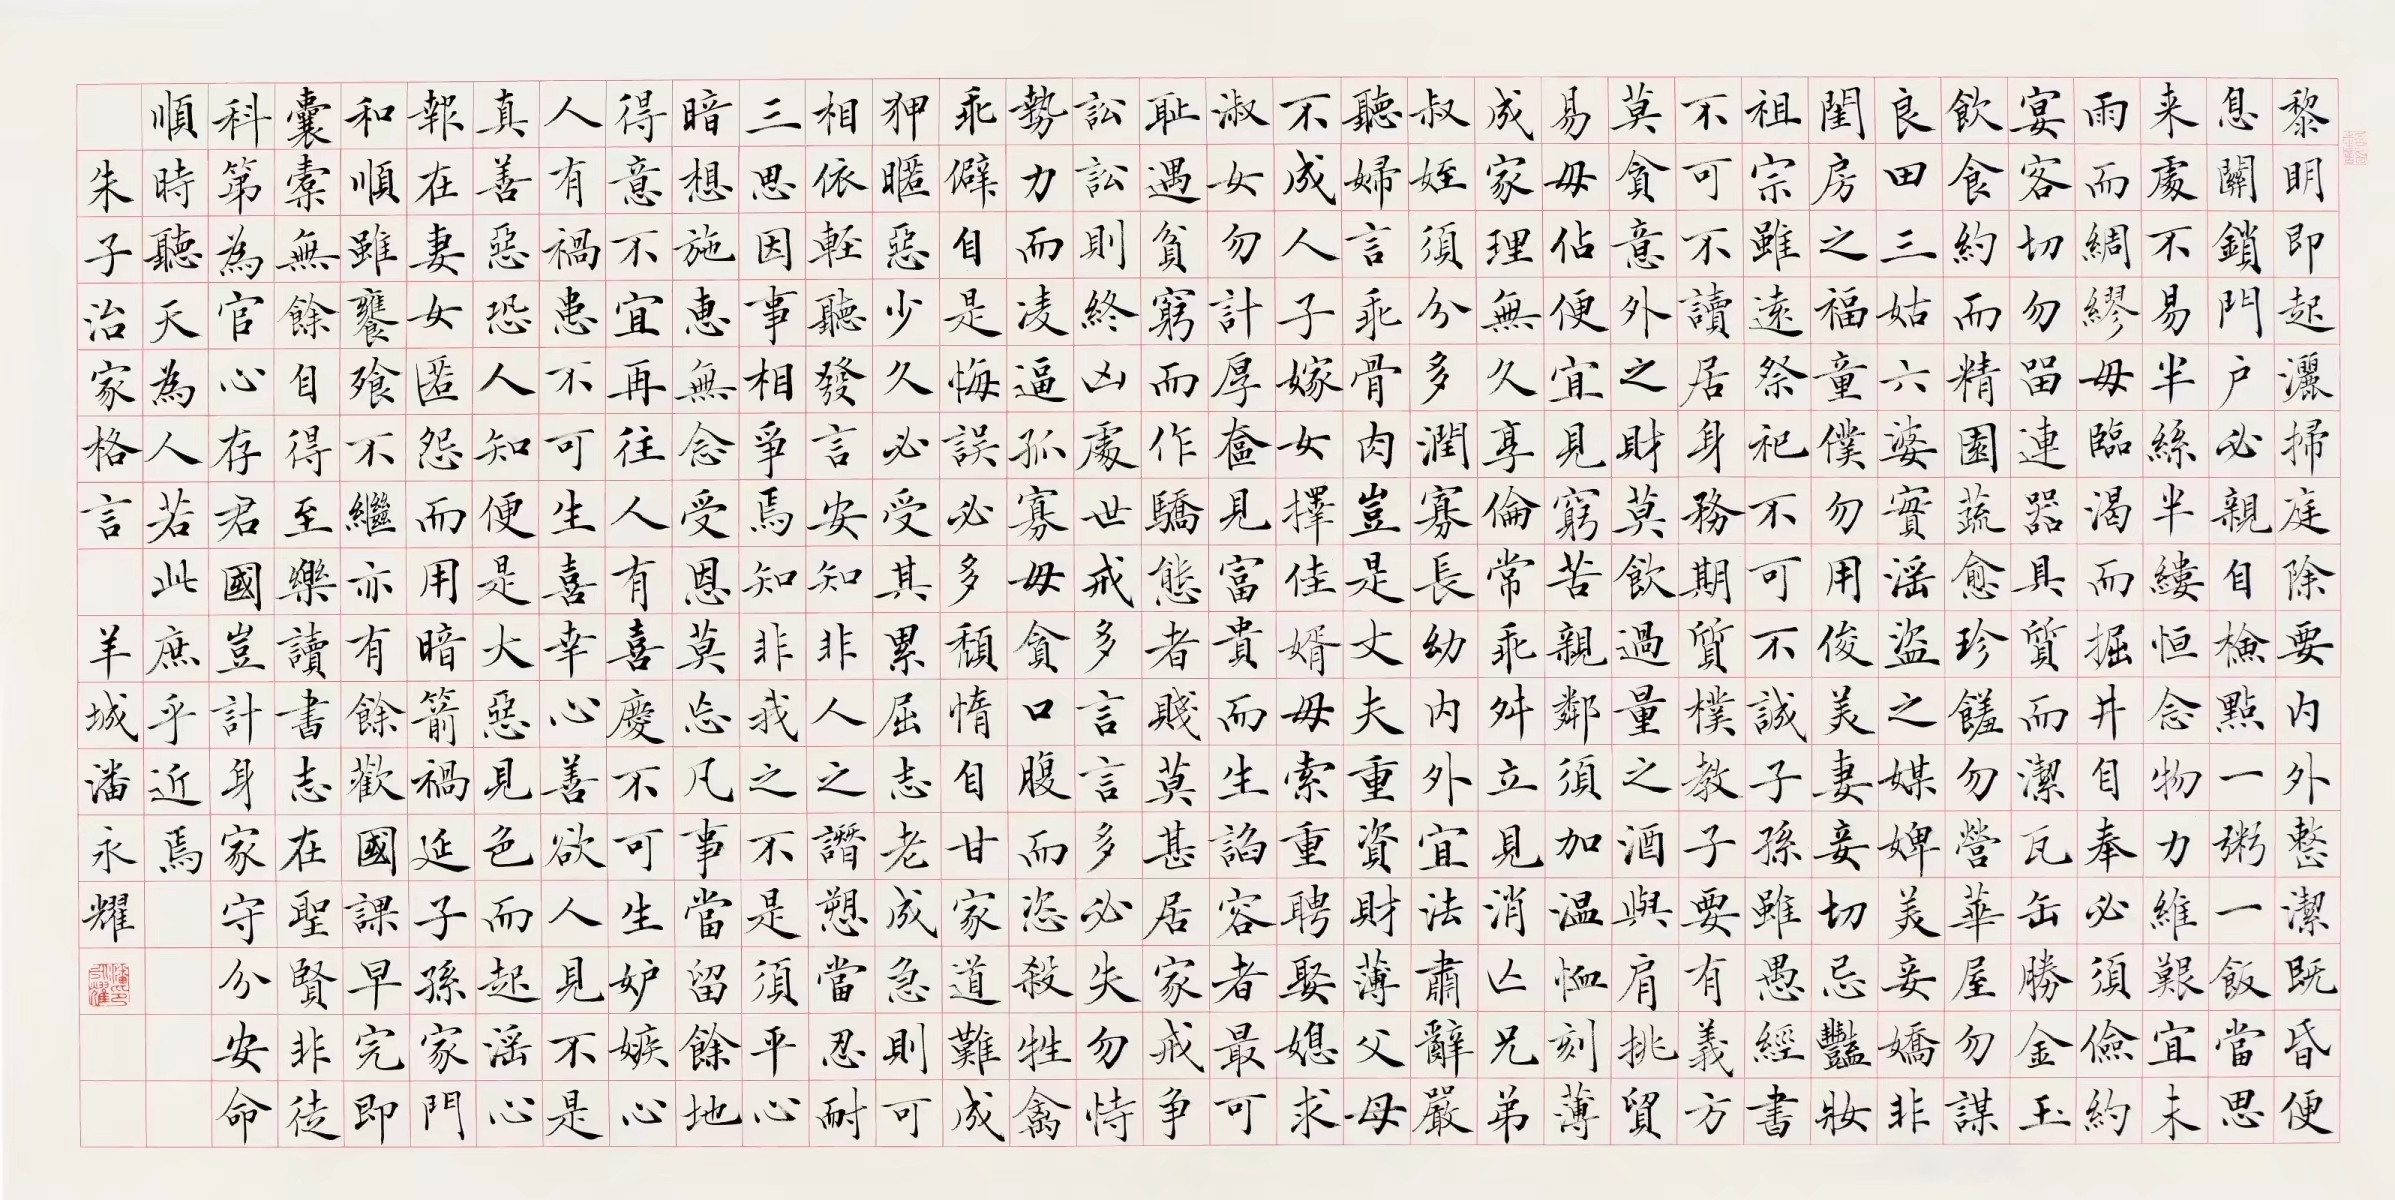 黎明即起灑掃庭除要內外整潔既昏便
息關鎖門户必親自檢點一粥一飯當思
来處不易半絲半縷恒念物力維艱宜未
雨而綢繆毋臨渴而掘井自奉必須儉約
宴客切勿留連器具質而潔瓦缶勝金玉
飲食約而精園蔬愈珍饈勿營華屋勿謀
良田三姑六婆實淫盜之媒婢美妾嬌非
閨房之福童僕勿用俊美妻妾切忌豔妝
祖宗雖遠祭祀不可不誠子孫雖愚經書
不可不讀居身務期質樸教子要有義方
莫貪意外之財莫飲過量之酒與肩挑貿
易毋佔便宜見窮苦親鄰須加温恤刻薄
成家理無久享倫常乖舛立見消亡兄弟
叔姪須分多潤寡長幼內外宜法肅辭嚴
聽婦言乖骨肉豈是丈夫重資財薄父母
不成人子嫁女擇佳婿毋索重聘娶媳求
淑女勿計厚奩見富貴而生諂容者最可
耻遇貧窮而作驕態者賤莫甚居家戒爭
訟訟則終凶處世戒多言言多必失勿恃
勢力而凌逼孤寡毋貪口腹而恣殺牲禽
乖僻自是悔誤必多頹惰自甘家道難成
狎暱惡少久必受其累屈志老成急則可
相依輕聽發言安知非人之譖愬當忍耐
三思因事相爭焉知非我之不是須平心
暗想施惠無念受恩莫忘凡事當留餘地
得意不宜再往人有喜慶不可生妒嫉心
人有禍患不可生喜幸心善欲人見不是
真善惡恐人知便是大惡見色而起淫心
報在妻女匿怨而用暗箭禍延子孫家門
和順雖饔飧不繼亦有餘歡國課早完即
囊橐無餘自得至樂讀書志在聖賢非徒
科第為官心存君國豈計身家守分安命
順時聽天為人若此庶乎近焉
朱子治家格言 羊城潘永耀